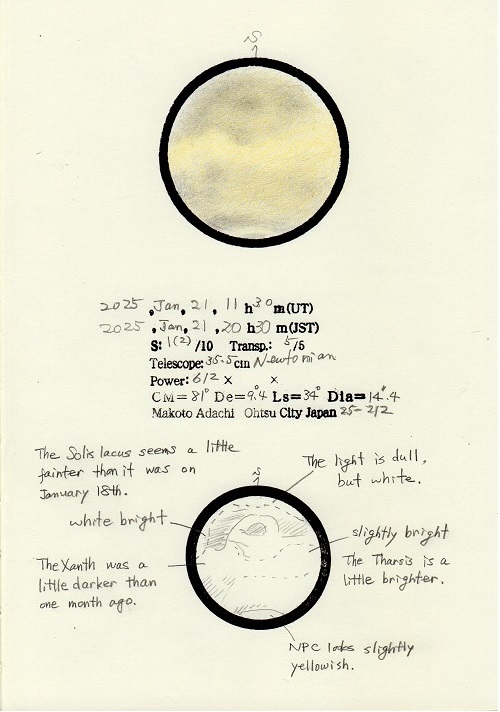 S
2025, Jan, 21, 11 h 30 m(UT)
2025, Jan, 21, 20 h 30 m(JST)
S: 1(2)/10 Transp.: 5/5
Telescope: 35.5cm Newtonian
Power: 612 x x
CM= 81° De= 9.4° Ls= 34° Dia= 14".4
Makoto Adachi Ohtsu City Japan 25-212
The Solis lacus seems a little
fainter than it was on
January 18th.
S
The light is dull,
but white.
white bright
slightly bright
The Xanth was a
little darker than
one month ago.
The Tharsis is a
little brighter.
NPC looks slightly
yellowish.